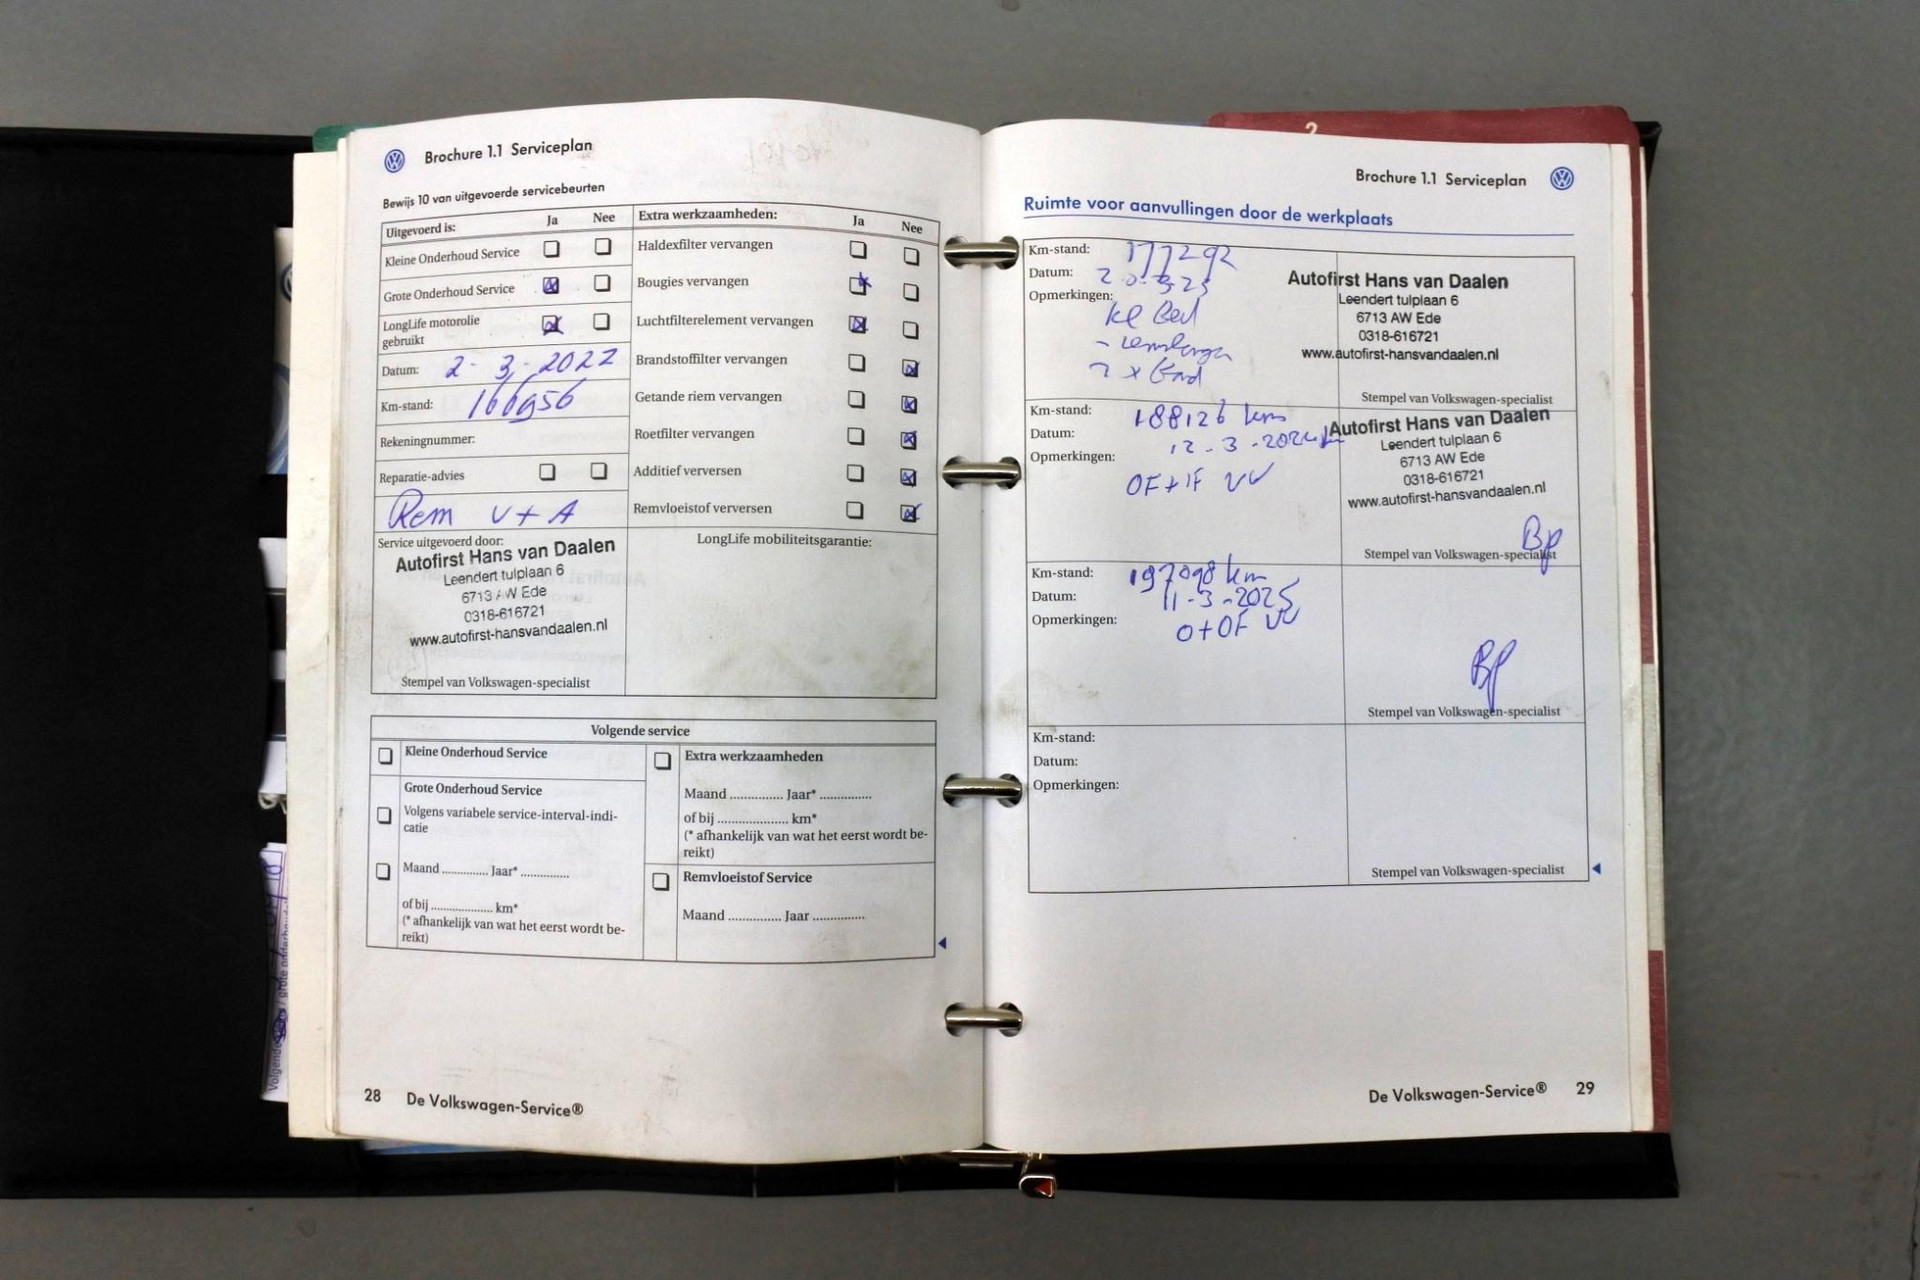 Brochure 1.1 Serviceplan
Bewijs 10 van uitgevoerde servicebeurten
Uitgevoerd is: Ja Nee
Kleine Onderhoud Service
Grote Onderhoud Service
LongLife motorolie
gebruikt
Datum: 2-3-2022
Km-stand: 166956
Rekeningnummer:
Reparatie-advies
Rem V+A
Service uitgevoerd door:
Autofirst Hans van Daalen
Leendert tulplaan 6
6713 AW Ede
0318-616721
www.autofirst-hansvandaalen.nl
Stempel van Volkswagen-specialist
Extra werkzaamheden: Ja Nee
Haldexfilter vervangen
Bougies vervangen
Luchtfilterelement vervangen
Brandstoffilter vervangen
Getande riem vervangen
Roetfilter vervangen
Additief verversen
Remvloeistof verversen
LongLife mobiliteitsgarantie:
Volgende service
Kleine Onderhoud Service
Grote Onderhoud Service
Volgens variabele service-interval-indi-
catie
Maand .............. Jaar* ..............
of bij .................... km*
(* afhankelijk van wat het eerst wordt be-
reikt)
Extra werkzaamheden
Maand .............. Jaar* ..............
of bij .................... km*
(* afhankelijk van wat het eerst wordt be-
reikt)
Remvloeistof Service
Maand .............. Jaar ..............
28 De Volkswagen-Service®
2
Brochure 1.1 Serviceplan
Ruimte voor aanvullingen door de werkplaats
Km-stand: 177292
Datum: 20-3-23
Opmerkingen:
Kl
Autofirst Hans van Daalen
Leendert tulplaan 6
6713 AW Ede
0318-616721
www.autofirst-hansvandaalen.nl
Stempel van Volkswagen-specialist
Km-stand: 188126 km
Datum: 12-3-2024
Opmerkingen:
OF+IF VV
Autofirst Hans van Daalen
Leendert tulplaan 6
6713 AW Ede
0318-616721
www.autofirst-hansvandaalen.nl
Bp
Stempel van Volkswagen-specialist
Km-stand: 197098 km
Datum: 11-3-2025
Opmerkingen: O+OF VV
Bp
Stempel van Volkswagen-specialist
Km-stand:
Datum:
Opmerkingen:
Stempel van Volkswagen-specialist
De Volkswagen-Service® 29